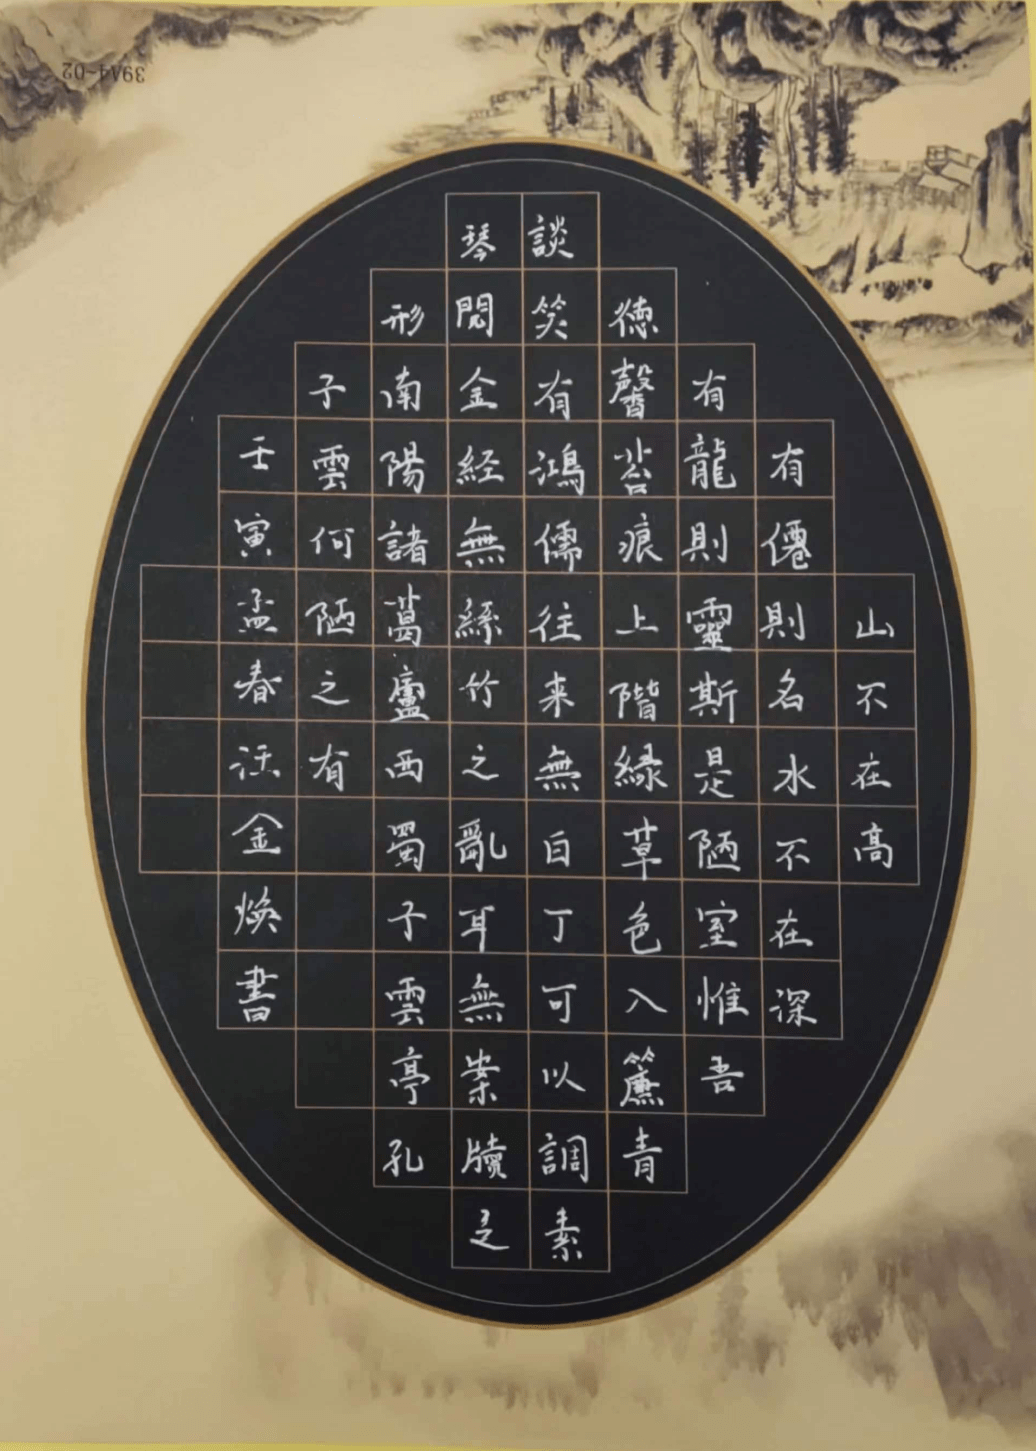 山不在高
有僊則名水不在深
有龍則靈斯是陋室惟吾
徳馨苔痕上階緑草色入簾青
談笑有鴻儒往来無白丁可以調素
琴閲金経無絲竹之亂耳無案牘之
形南陽諸葛廬西蜀子雲亭孔
子雲何陋之有
壬寅孟春金煥書
39A4-02